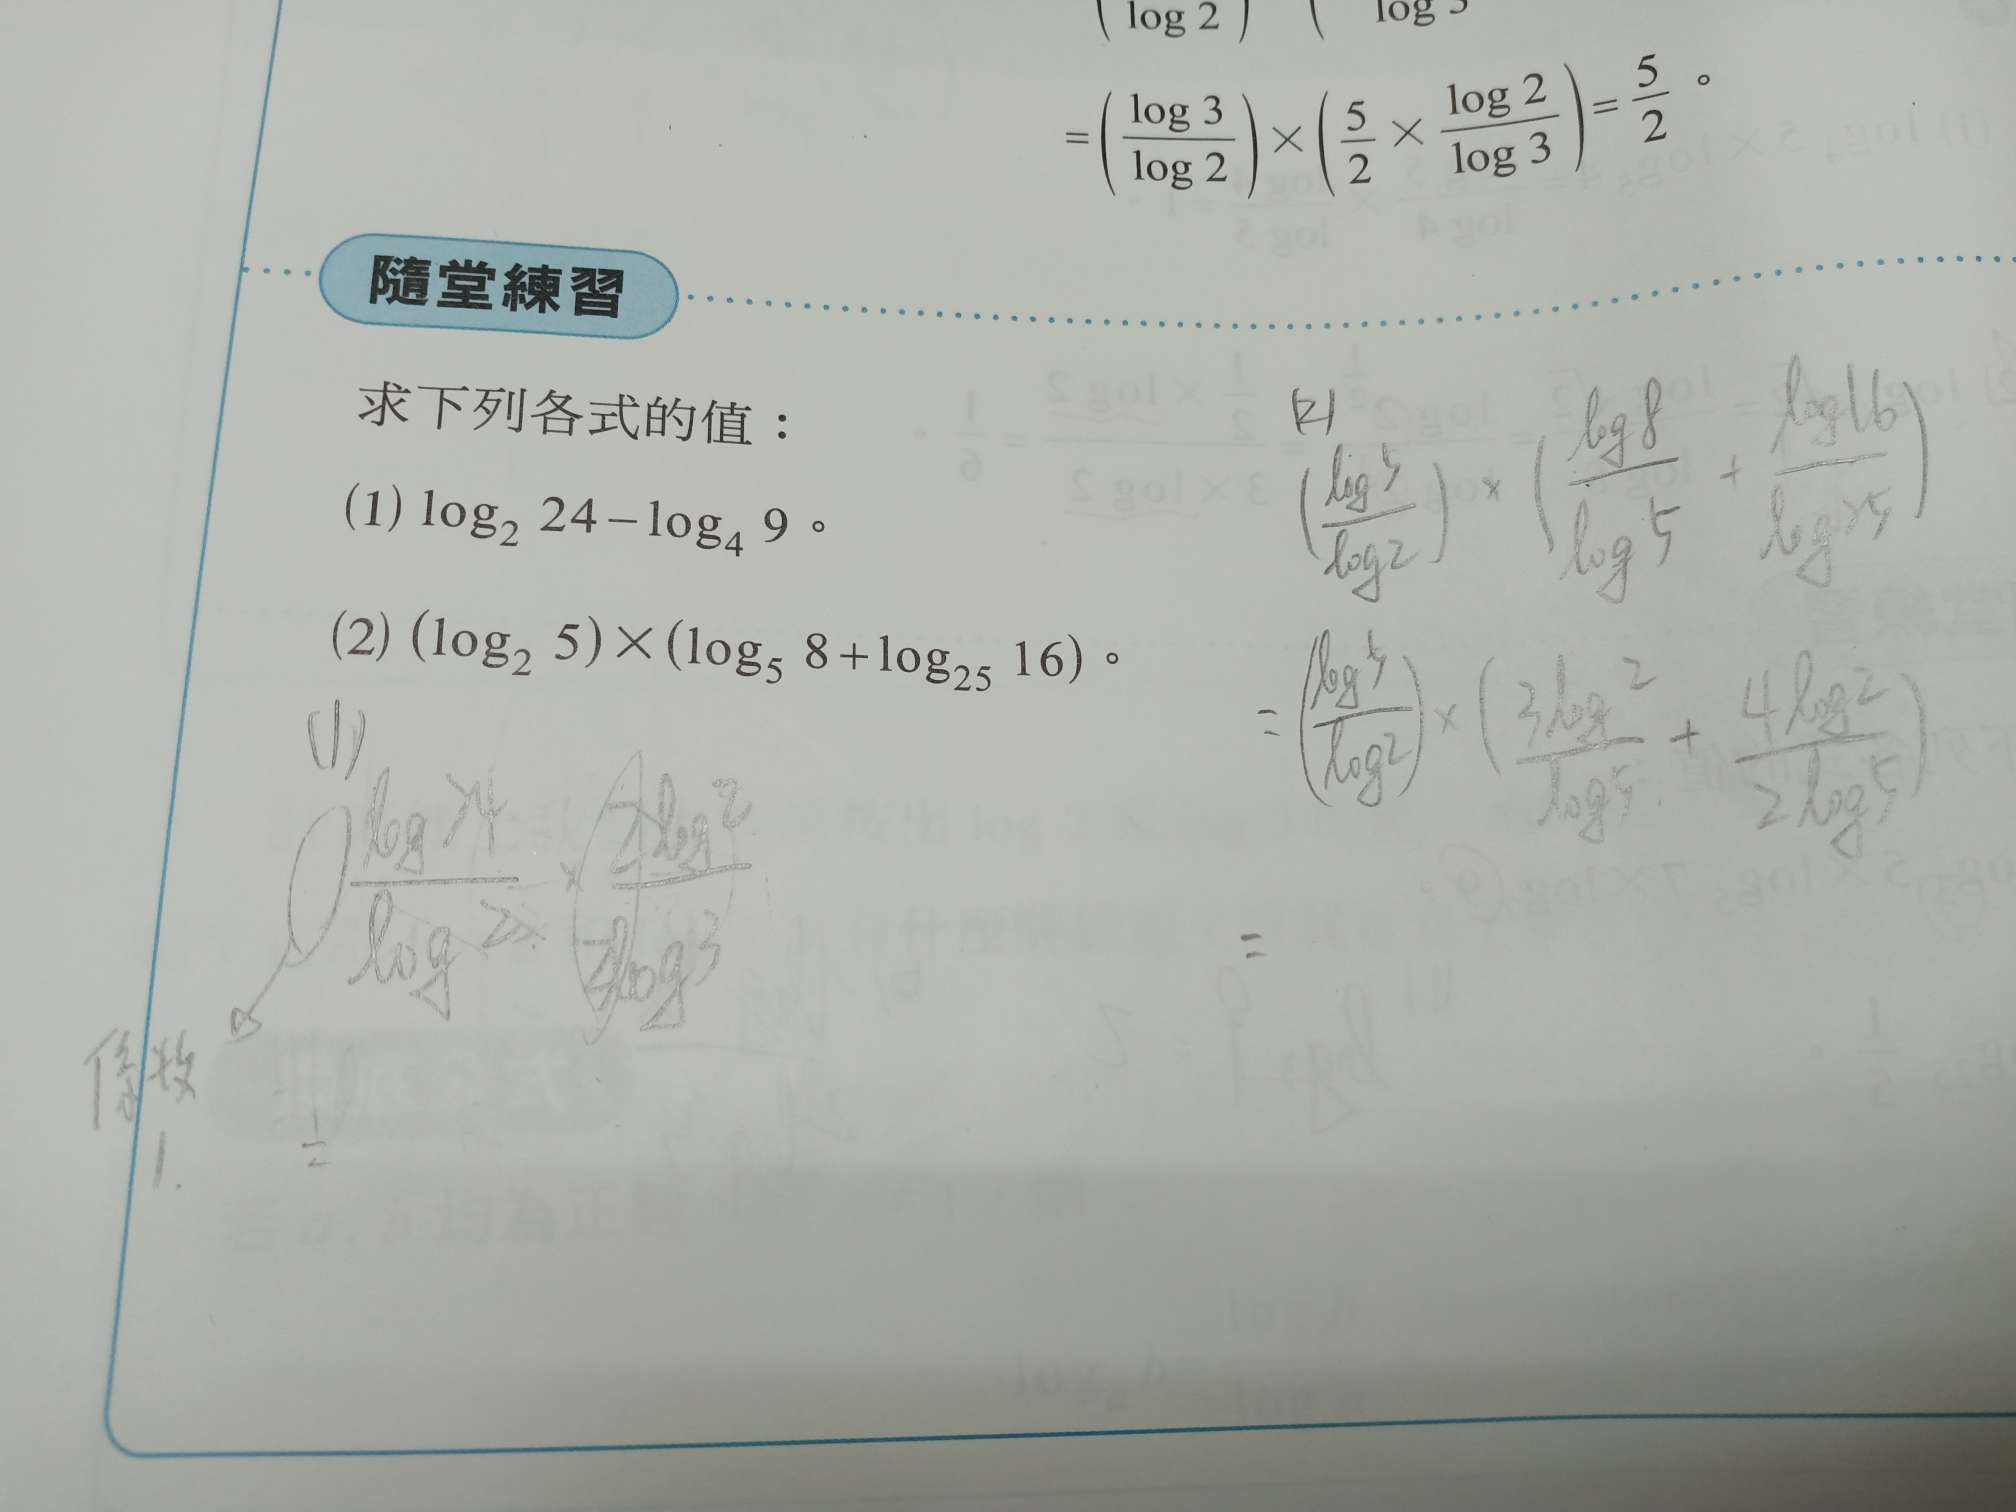 log 2 log 3
= ( log 3 / log 2 ) × ( 5/2 × log 2 / log 3 ) = 5/2 。
隨堂練習
求下列各式的值：
(1) log₂ 24 − log₄ 9。
(2) (log₂ 5) × (log₅ 8 + log₂₅ 16)。
(1)
log 24 / log 2 × 2 log 2 / 2 log 3
係數
1.
=
(2)
( log 5 / log 2 ) × ( log 8 / log 5 + log 16 / log 25 )
= ( log 5 / log 2 ) × ( 3 log 2 / log 5 + 4 log 2 / 2 log 5 )
=